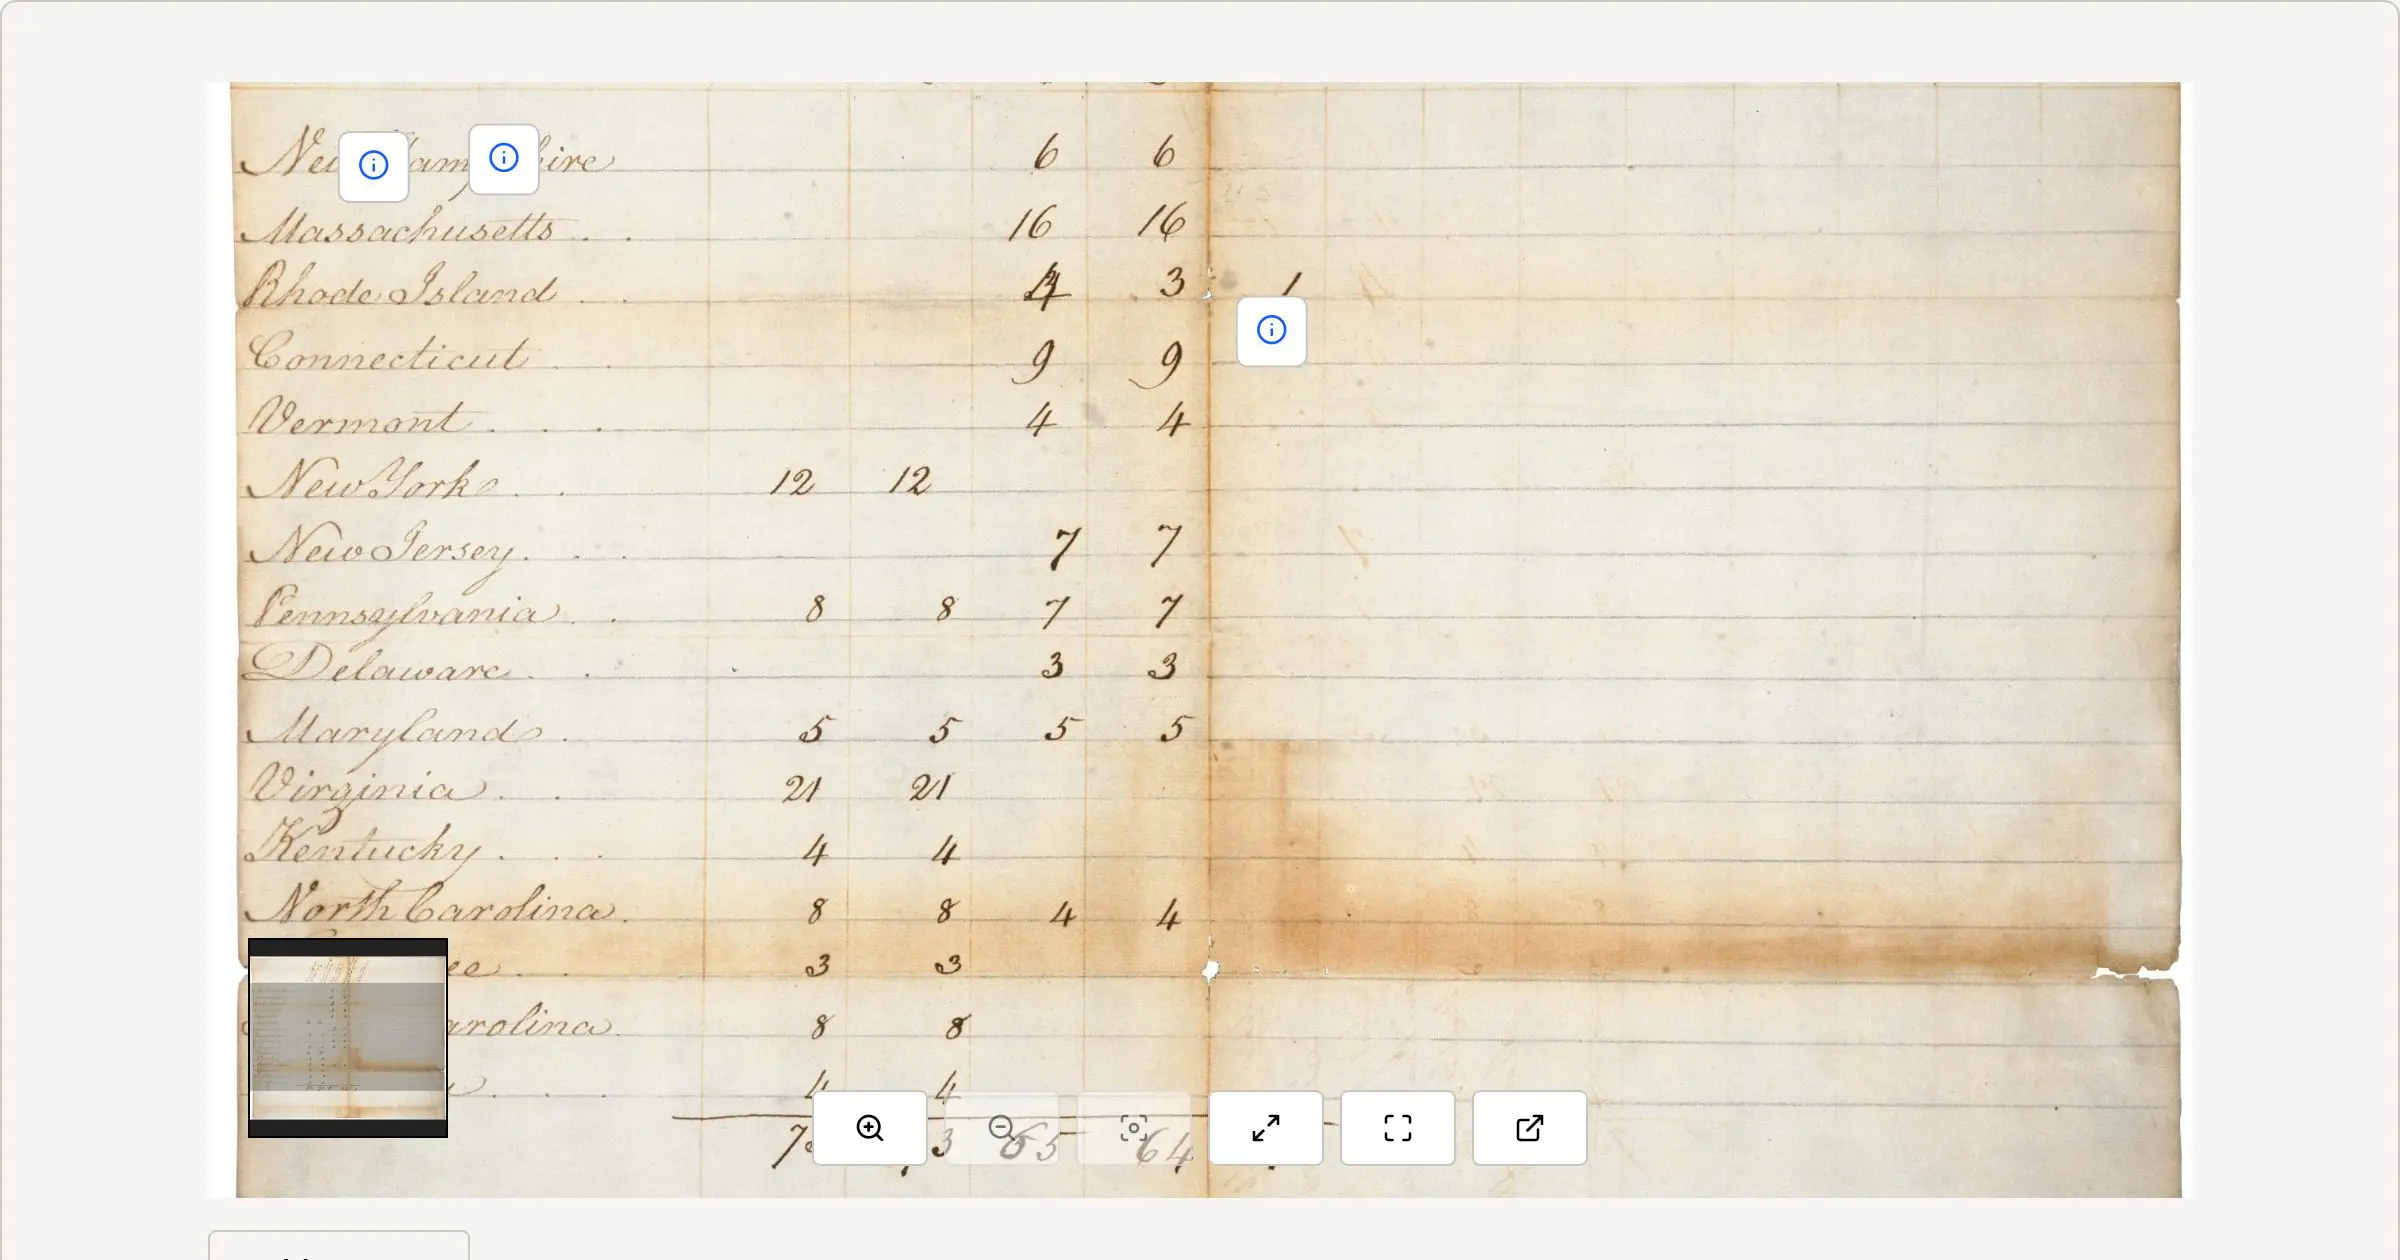 New Hampshire 6 6
Massachusetts . . 16 16
Rhode Island . . 4 3 1
Connecticut . . 9 9
Vermont . . . 4 4
New York . . 12 12
New Jersey . . . 7 7
Pennsylvania . . 8 8 7 7
Delaware . . 3 3
Maryland . 5 5 5 5
Virginia . . 21 21
Kentucky . . . 4 4
North Carolina . 8 8 4 4
ee . . 3 3
arolina . 8 8
. . . 4 4
7 3 65 64